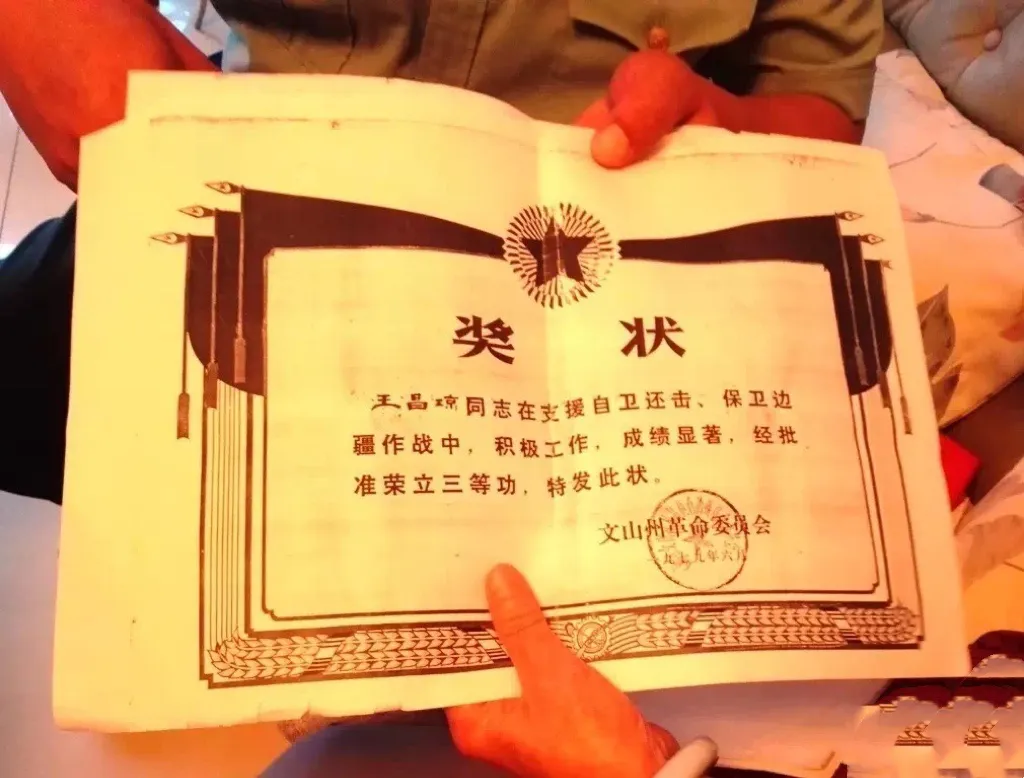 奖 状
王昌琼同志在支援自卫还击、保卫边
疆作战中，积极工作，成绩显著，经批
准荣立三等功，特发此状。
文山州革命委员会
一九七九年六月